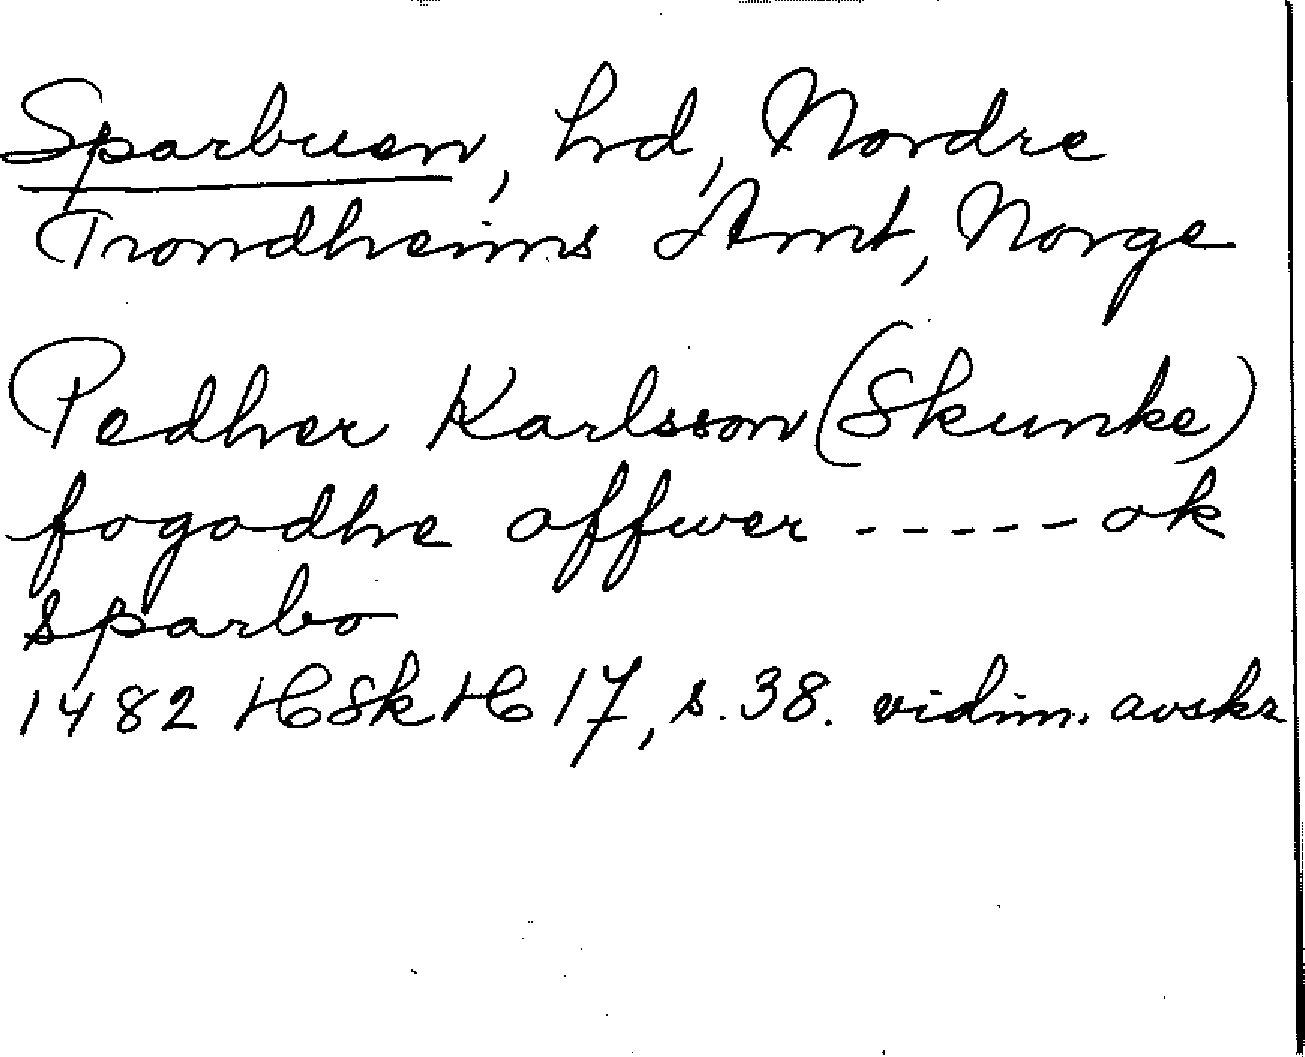 Sparbuen, hd, Nordre
Trondheims Amt, Norge
Pedher Karlsson (Skunke)
fogadhe offwer ----- ok
sparbo
1482 HSkH 17, s. 38. vidim. avskr